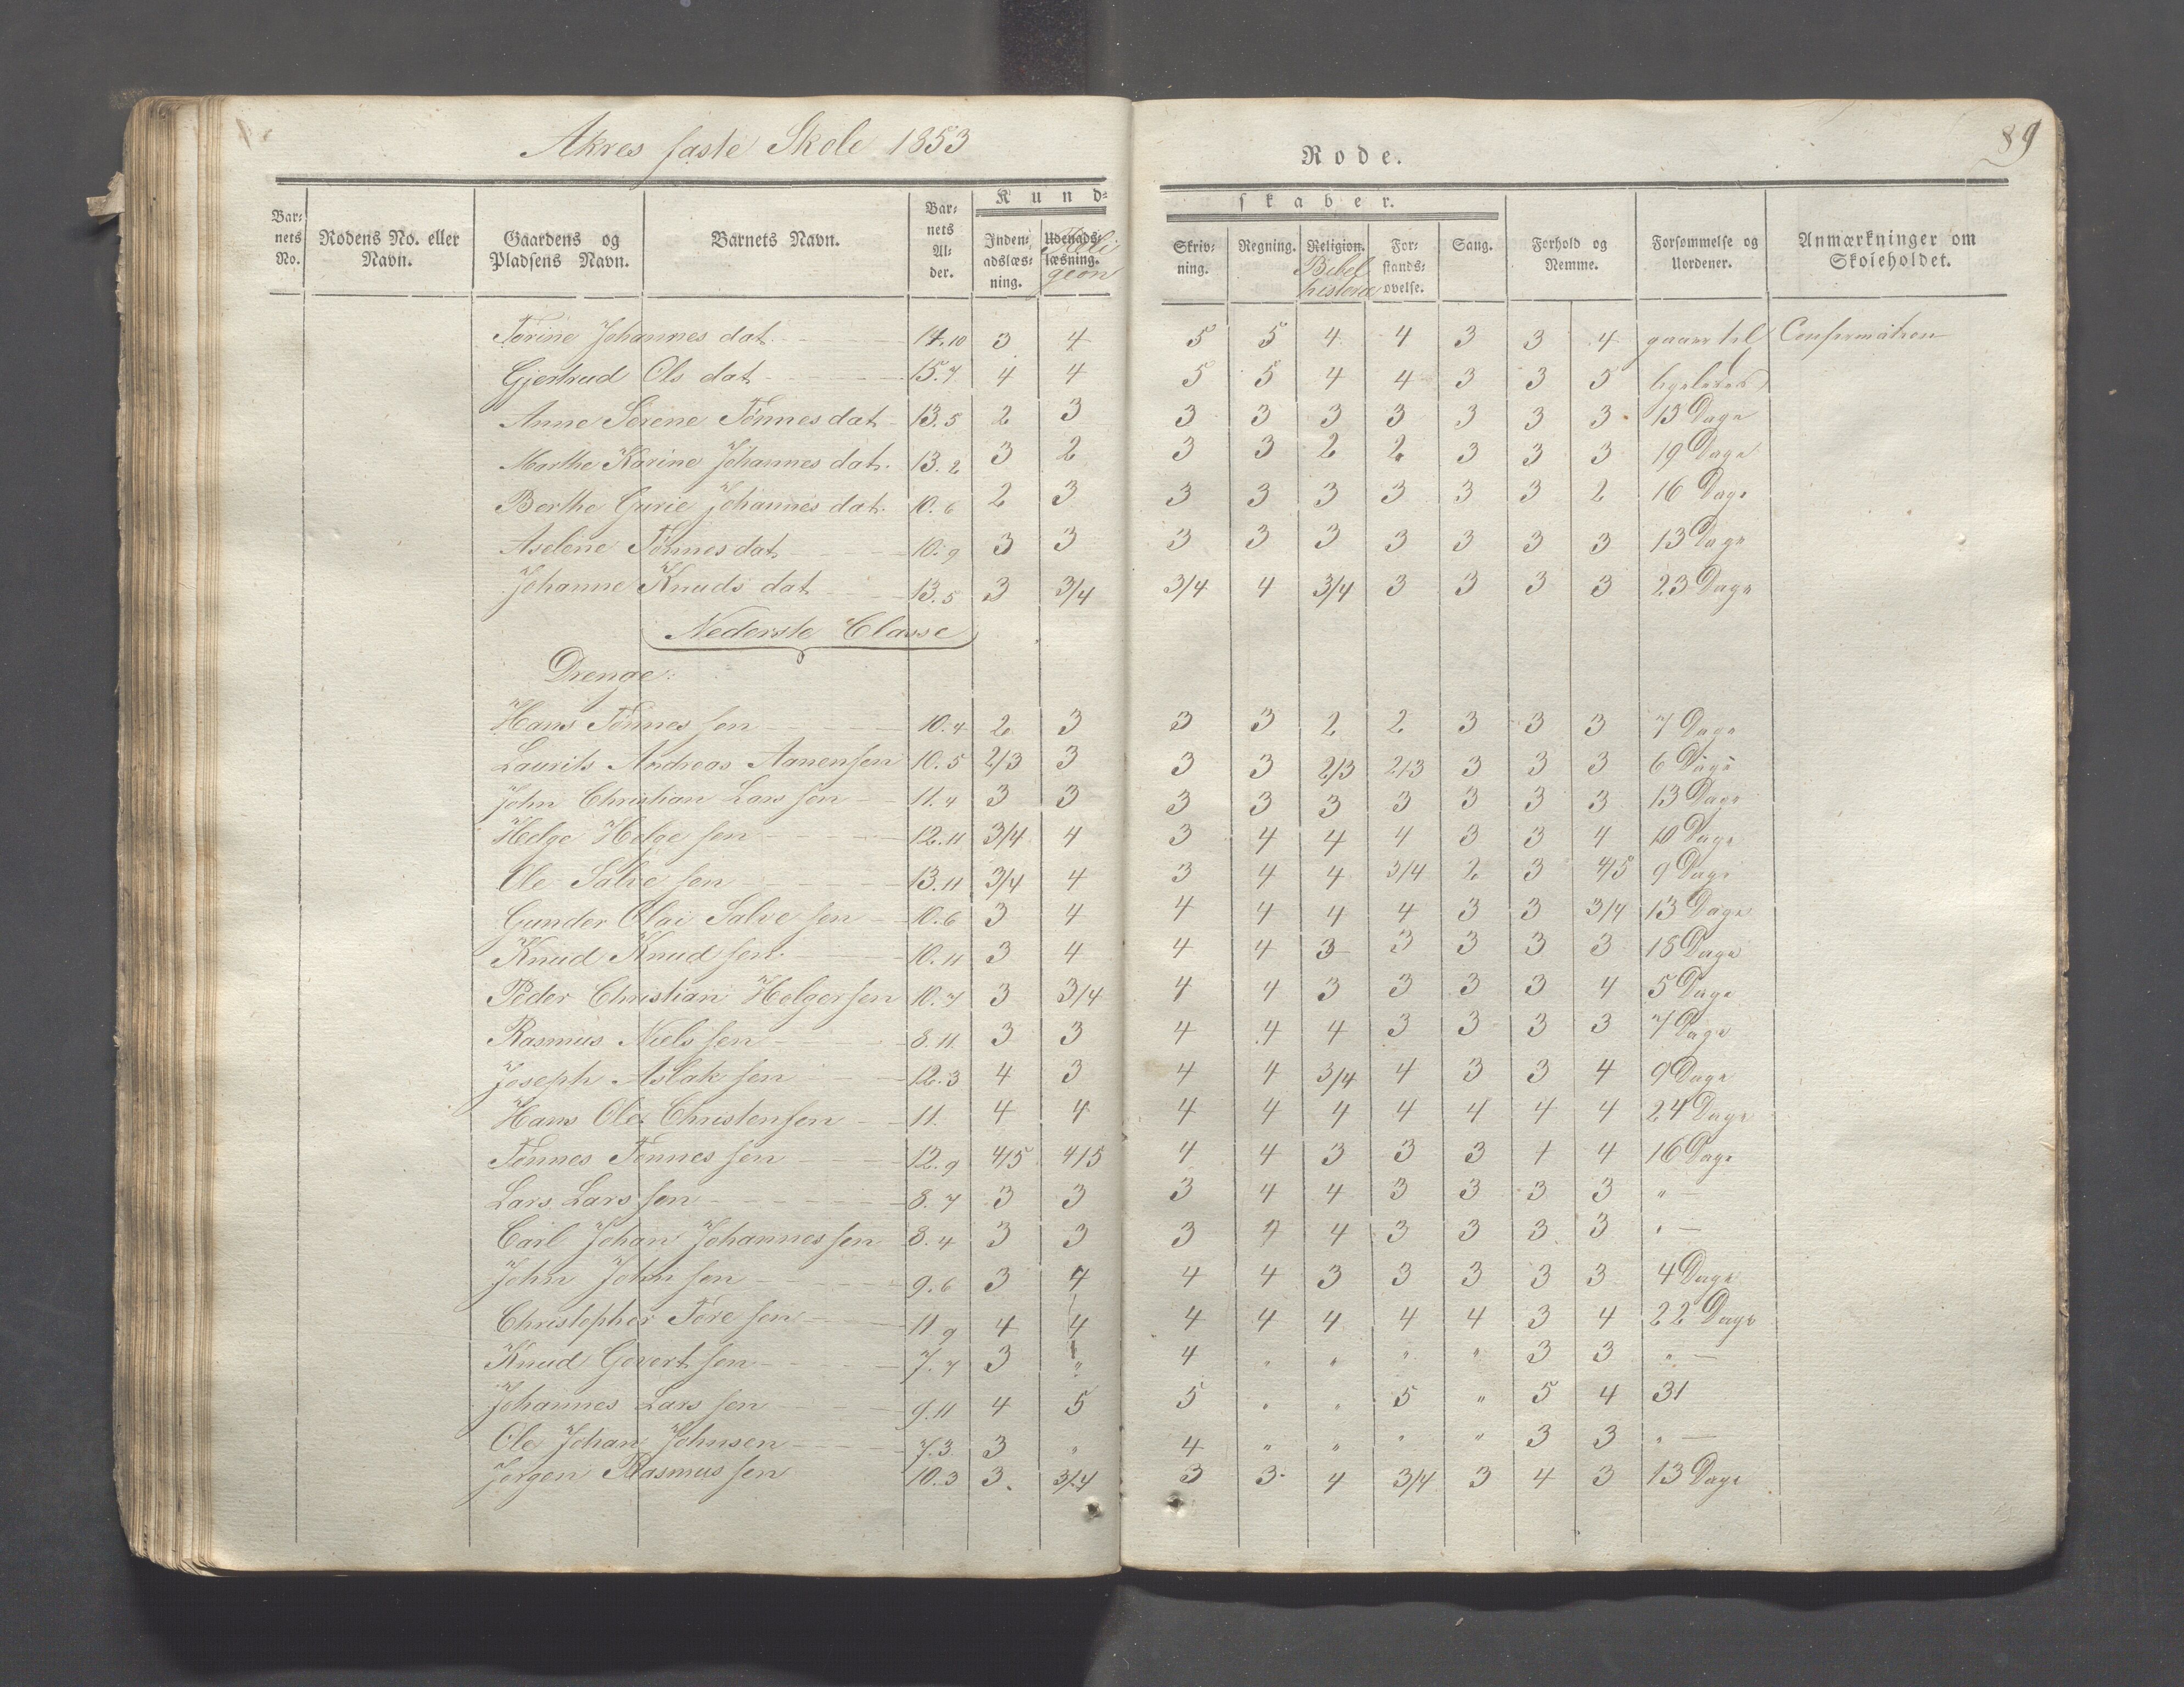 Akres faste Skole 1853
Rode.
89
Bar-nets No.
Rodens No. eller Navn.
Gaardens og Pladsens Navn.
Barnets Navn.
Bar-nets Al-der.
Kund-
skaber.
Inden-adslæs-ning.
Udenads-læsning. Reli-gion
Skriv-ning.
Regning.
Religion. Bibel historie
For-stands-øvelse.
Sang.
Forhold og Nemme.
Forsømmelse og Uordener.
Anmærkninger om Skoleholdet.
Torine Johannes dat. 14.10 3 4 5 5 4 4 3 3 4 gaaer til Confirmation
Gjertrud Ols dat 15.7 4 4 5 5 4 4 3 3 5 ligeledes
Anne Serene Tønnes dat 13.5 2 3 3 3 3 3 3 3 3 13 Dage
Marthe Karine Johannes dat. 13.2 3 2 3 3 2 2 3 3 3 19 Dage
Berthe Gurie Johannes dat. 10.6 2 3 3 3 3 3 3 3 2 16 Dage
Aselene Tønnes dat 10.9 3 3 3 3 3 3 3 3 3 13 Dage
Johanne Knuds dat 13.5 3 3/4 3/4 4 3/4 3 3 3 3 23 Dage
Nederste Classe
Drenge:
Hans Tønnes sen 10.4 2 3 3 3 2 2 3 3 3 7 Dage
Laurits Andreas Aanensen 10.5 2/3 3 3 3 2/3 2/3 3 3 3 6 Dage
John Christian Lars sen 11.4 3 3 3 3 3 3 3 3 3 13 Dage
Helge Helge sen 12.11 3/4 4 3 4 4 4 3 3 4 10 Dage
Ole Salve sen 13.11 3/4 4 3 4 4 3/4 2 3 4/5 9 Dage
Gunder Olai Salve sen 10.6 3 4 4 4 4 4 3 3 3/4 13 Dage
Knud Knud sen 10.11 3 4 4 4 3 3 3 3 3 15 Dage
Peder Christian Helgersen 10.7 3 3/4 4 4 3 3 3 3 4 5 Dage
Rasmus Niels sen 8.11 3 3 4 4 4 3 3 3 3 7 Dage
Joseph Aslak sen 12.3 4 3 4 4 3/4 4 3 3 4 9 Dage
Hans Ole Christensen 11. 4 4 4 4 4 4 4 4 4 24 Dage
Tønnes Tønnes sen 12.9 4/5 4/5 4 4 3 3 3 4 4 16 Dage
Lars Lars sen 8.7 3 3 3 4 4 3 3 3 3 " —
Carl Johan Johannes sen 8.4 3 3 3 4 4 3 3 3 3 " —
John John sen 9.6 3 4 4 4 3 3 3 3 3 4 Dage
Christopher Tore sen 11 9 4 4 4 4 4 4 4 3 4 22 Dage
Knud Govert sen 7.7 3 " 4 " " " " 3 3 " —
Johannes Lars sen 9.11 4 5 5 " " 5 " 5 4 31
Ole Johan Johnsen 7.3 3 " 4 " " " " 3 3 " —
Jørgen Rasmus sen 10.3 3. 3/4 3 3 4 3/4 3 4 3 13 Dage